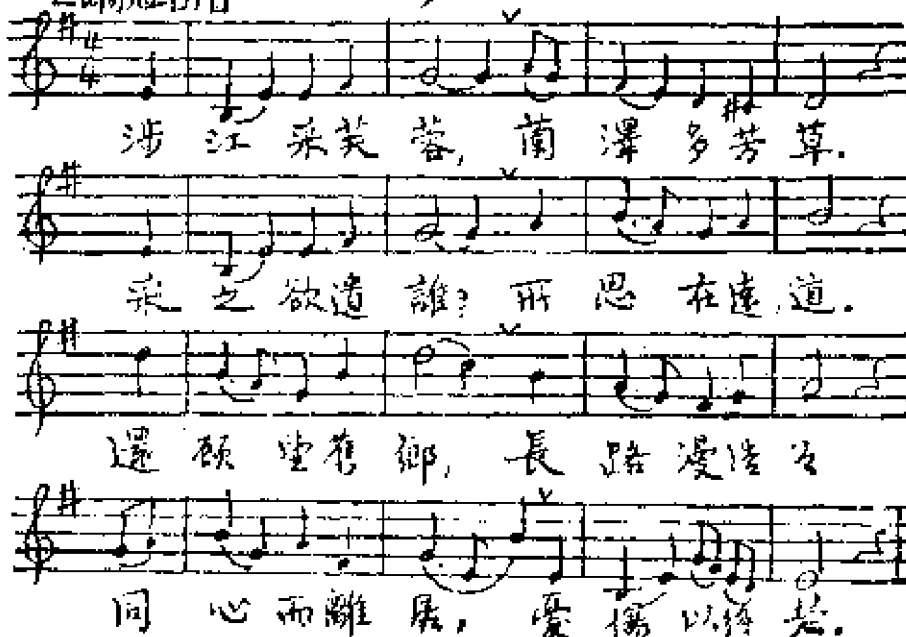 4
4
涉江采芙蓉，蘭澤多芳草．
采之欲遺誰？所思在遠道．
還顧望舊鄉，長路漫浩浩
同心而離居，憂傷以終老．